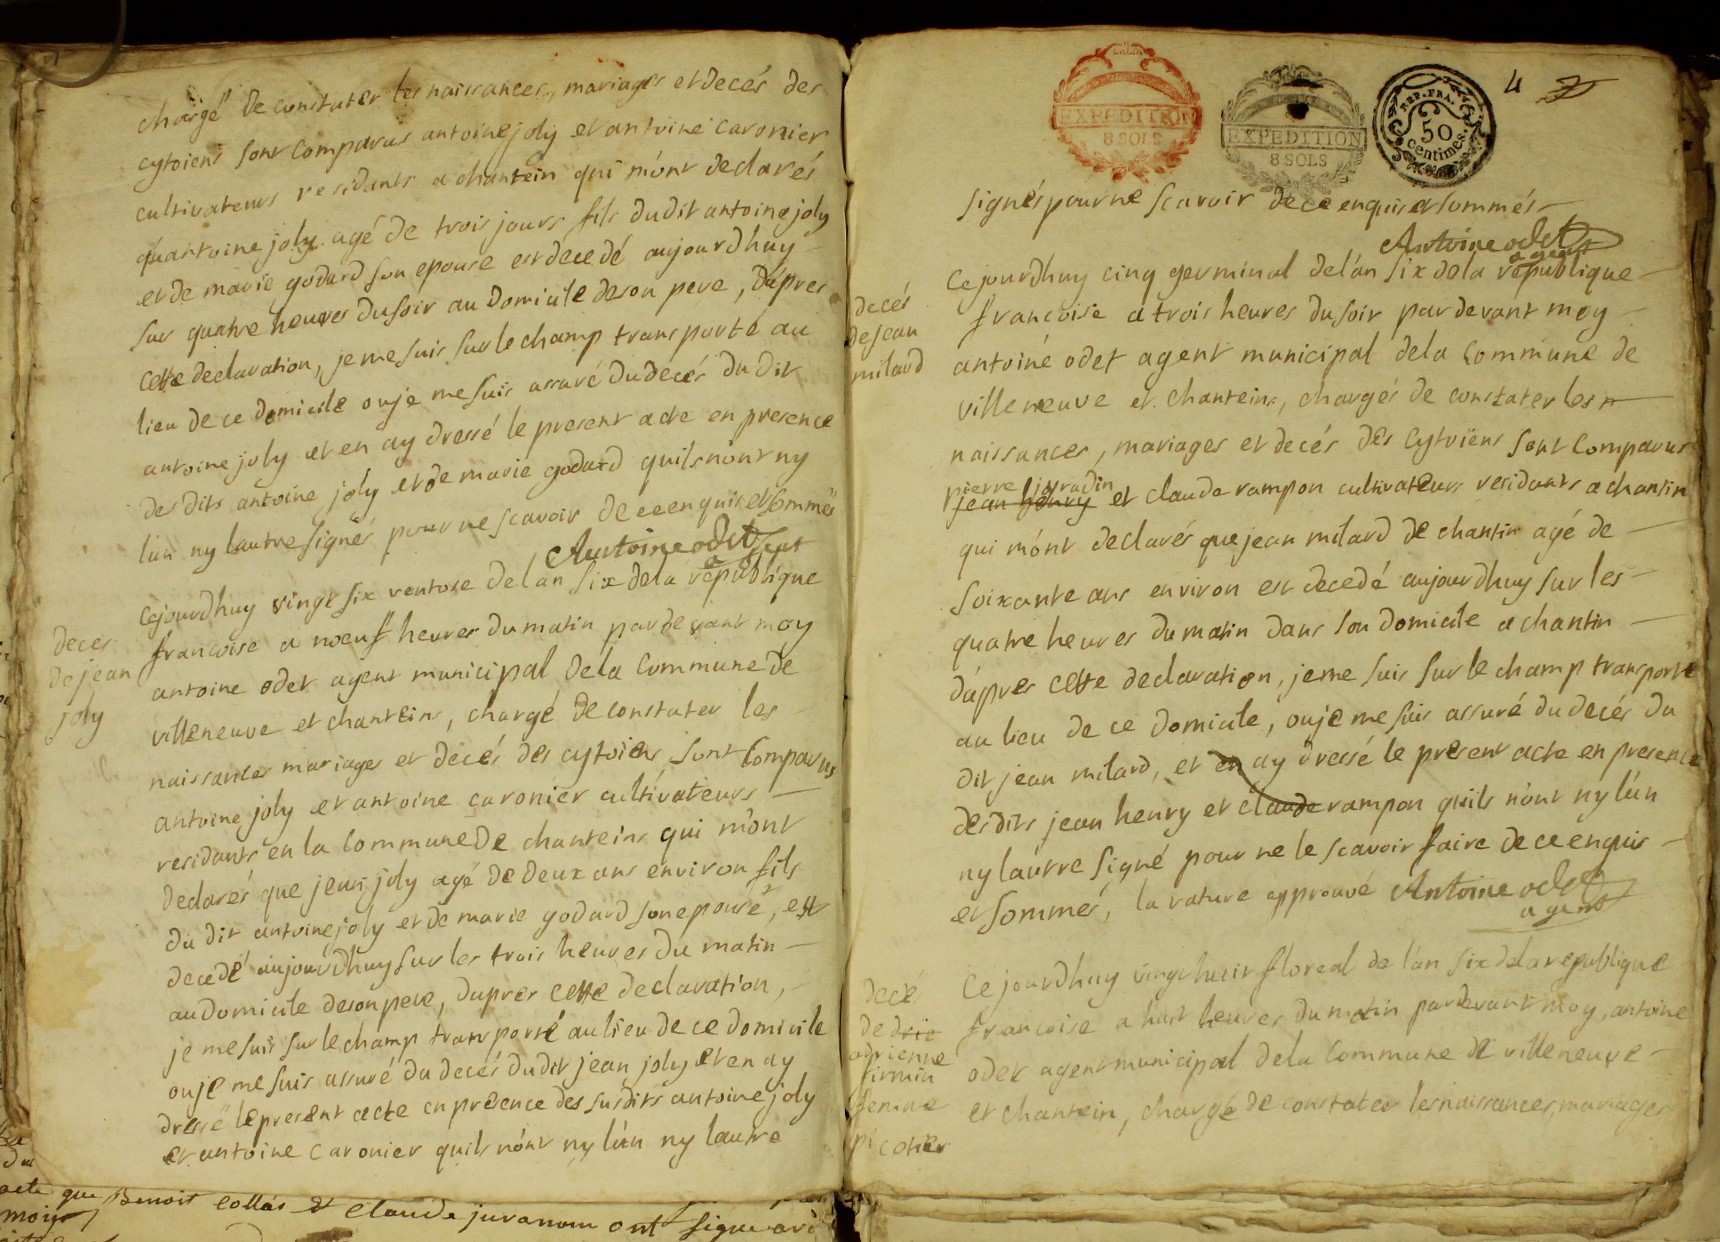 chargé de constater les naissances, mariages et decés des
cytoiens sont comparus antoine joly et antoine caronier
cultivateurs residants a chantein qui m'ónt declarés
qu'antoine joly agé de trois jours fils dudit antoine joly
et de marie godard son epouse est decedé aujourdhuy
sur quatre heures du soir au domicile de son pere, d'ápres
cette declaration, je me suis sur le champ transporté au
lieu de ce domicile ou je me suis assuré du decés du dit
antoine joly et en ay dressé le present acte en presence
des dits antoine joly et de marie godard quils nónt ny
lún ny lautre signés pour ne scavoir de ce enquis et sommés
Antoine odet
agent
decés
de jean
joly
Cejourdhuy vingt six ventose de lán six de la république
francoise a noeuf heures du matin pardevant moy
antoine odet agent municipal de la Commune de
villeneuve et chanteins, chargé de constater les
naissances mariages et décés des cytoiens sont Comparus
antoine joly et antoine caronier cultivateurs
residants en la Commune de chanteins qui mónt
declarés que jean joly agé de deux ans environ fils
du dit antoine joly et de marie godard son epouse, est
decedé aujourdhuy sur les trois heures du matin
au domicile de son pere, dapres cette declaration,
je me suis sur le champ transporté au lieu de ce domicile
ou je me suis assuré du decés du dit jean joly et en ay
dressé le present acte en presence des susdits antoine joly
et antoine caronier quils nónt ny lún ny lautre
acte que Benoit Collas et Claude juranom ont signé avec
moy
EXPEDITION
8 SOLS
EXPEDITION
8 SOLS
REP. FRA.
50
centimes.
4
signés pour ne scavoir de ce enquis et sommés
Antoine odet
agent
decés
de jean
milard
Cejourdhuy cinq germinal de lán six de la république
francoise a trois heures du soir pardevant moy
antoiné odet agent municipal de la Commune de
villeneuve et chanteins, chargés de constater les n
naissances, mariages et decés des cytoïens sont Comparus
pierre joyradin
jean henry et claude rampon cultivateurs residants a chantin
qui mónt declarés que jean milard de chantin agé de
soixante ans environ est decedé aujourdhuy sur les
quatre heures du matin dans son domicile a chantin
dápres cette declaration, je me suis sur le champ transporté
au lieu de ce domicile, ou je me suis assuré du decés du
dit jean milard, et en ay dressé le present acte en presence
des dits jean henry et claude rampon quils nónt ny lún
ny láutre signé pour ne le scavoir faire de ce enquis
et sommés, la rature approuvé Antoine odet
agent
decé
de drie
adrienne
firmin
femme
picotier
Cejourdhuy vingt huit floreal de lán six de la republique
francoise a huit heures du matin pardevant moy, antoine
odet agent municipal de la Commune de villeneuve
et chantein, chargé de constater les naissances, mariages